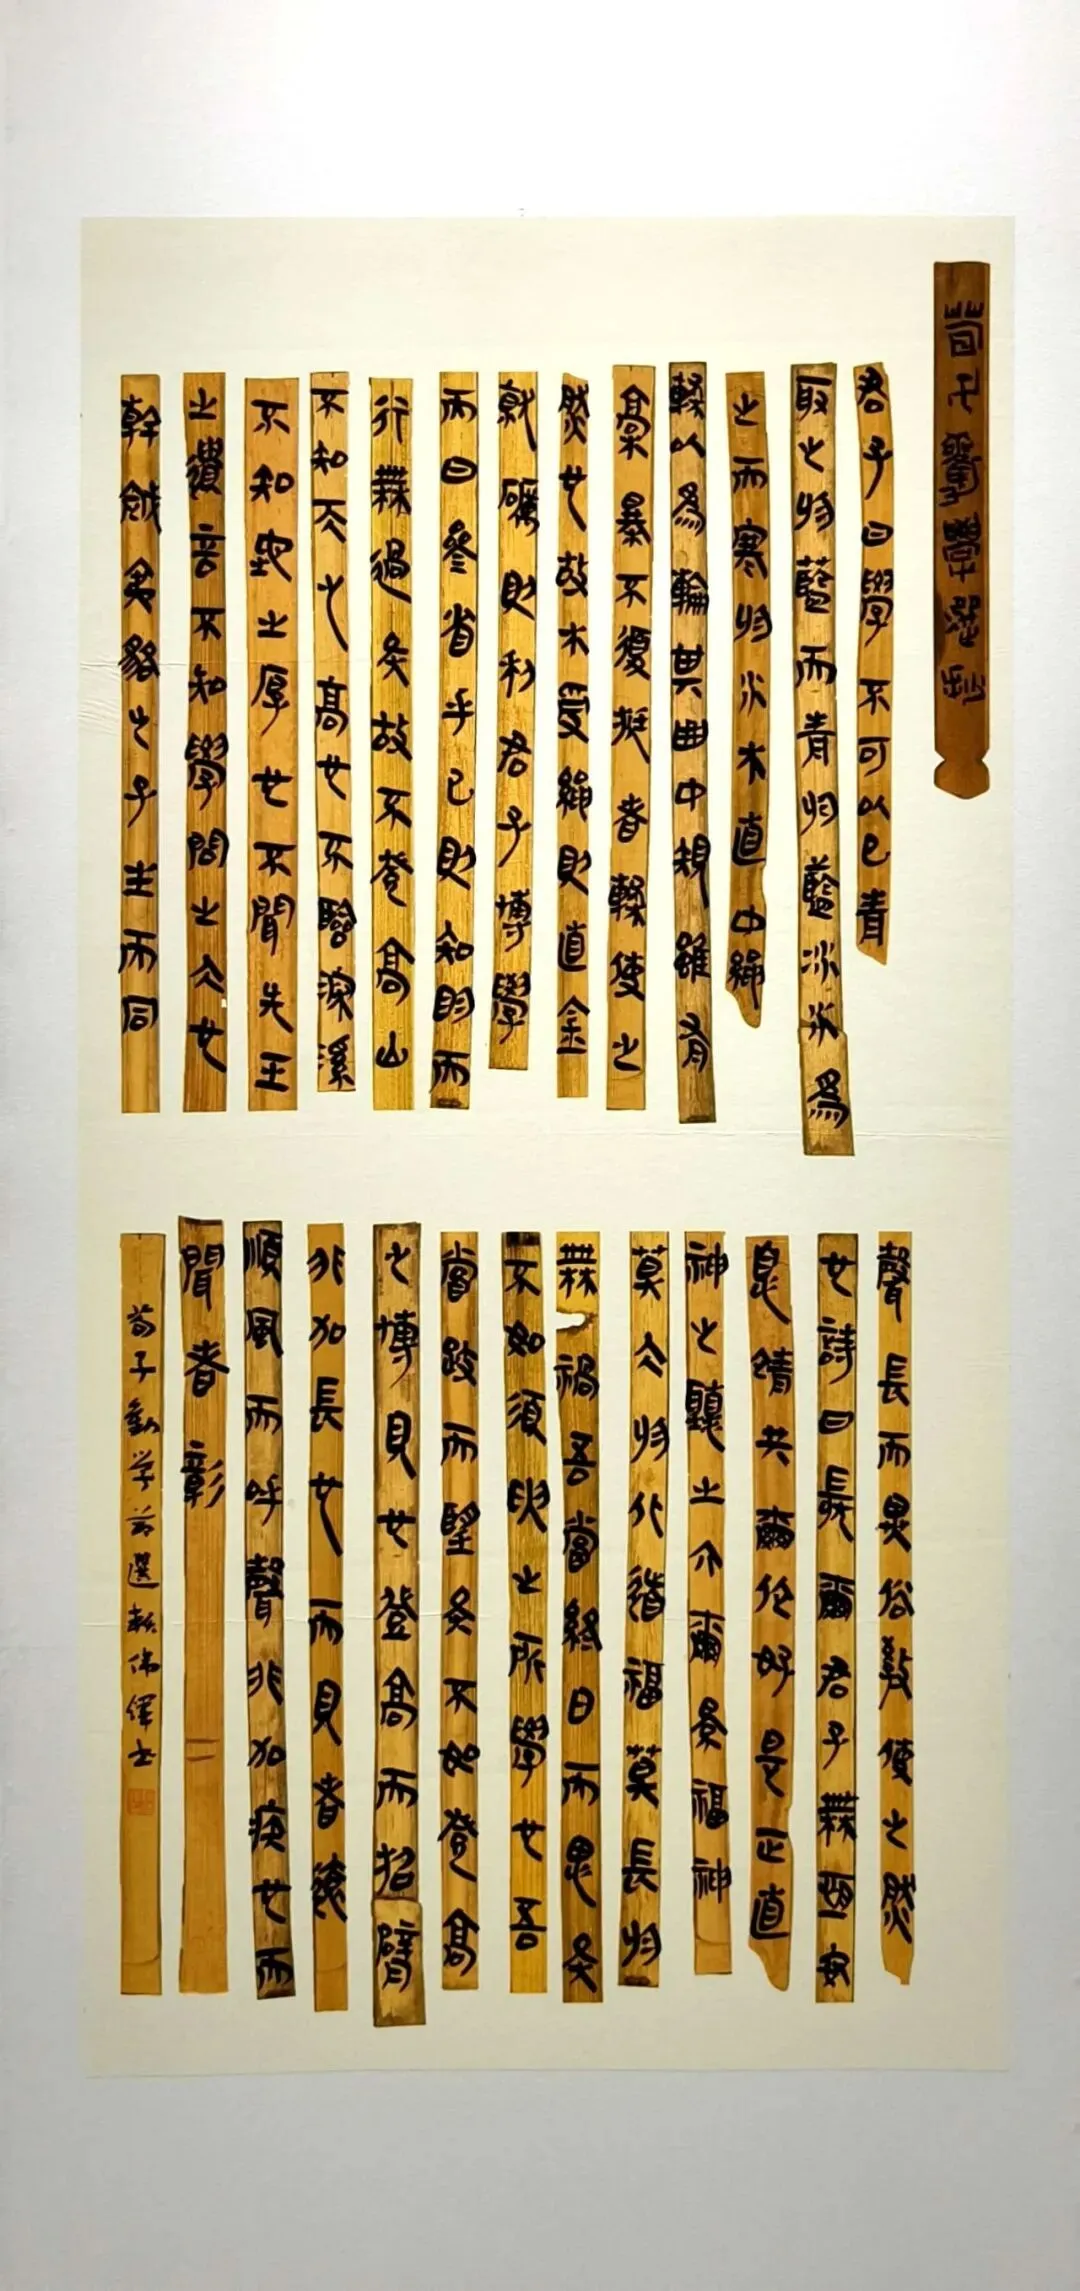 荀子勸學選鈔
君子曰學不可以已青
取之於藍而青於藍冰水為
之而寒於水木直中繩
輮以為輪其曲中規雖有
槁暴不復挺者輮使之
然也故木受繩則直金
就礪則利君子博學
而日參省乎己則知明而
行無過矣故不登高山
不知天之高也不臨深溪
不知地之厚也不聞先王
之遺言不知學問之大也
幹越夷貉之子生而同
聲長而異俗教使之然
也詩曰嗟爾君子無恆安
息靖共爾位好是正直
神之聽之介爾景福神
莫大於化道福莫長於
無禍吾嘗終日而思矣
不如須臾之所學也吾
嘗跂而望矣不如登高
之博見也登高而招臂
非加長也而見者遠
順風而呼聲非加疾也而
聞者彰
荀子勸学選書